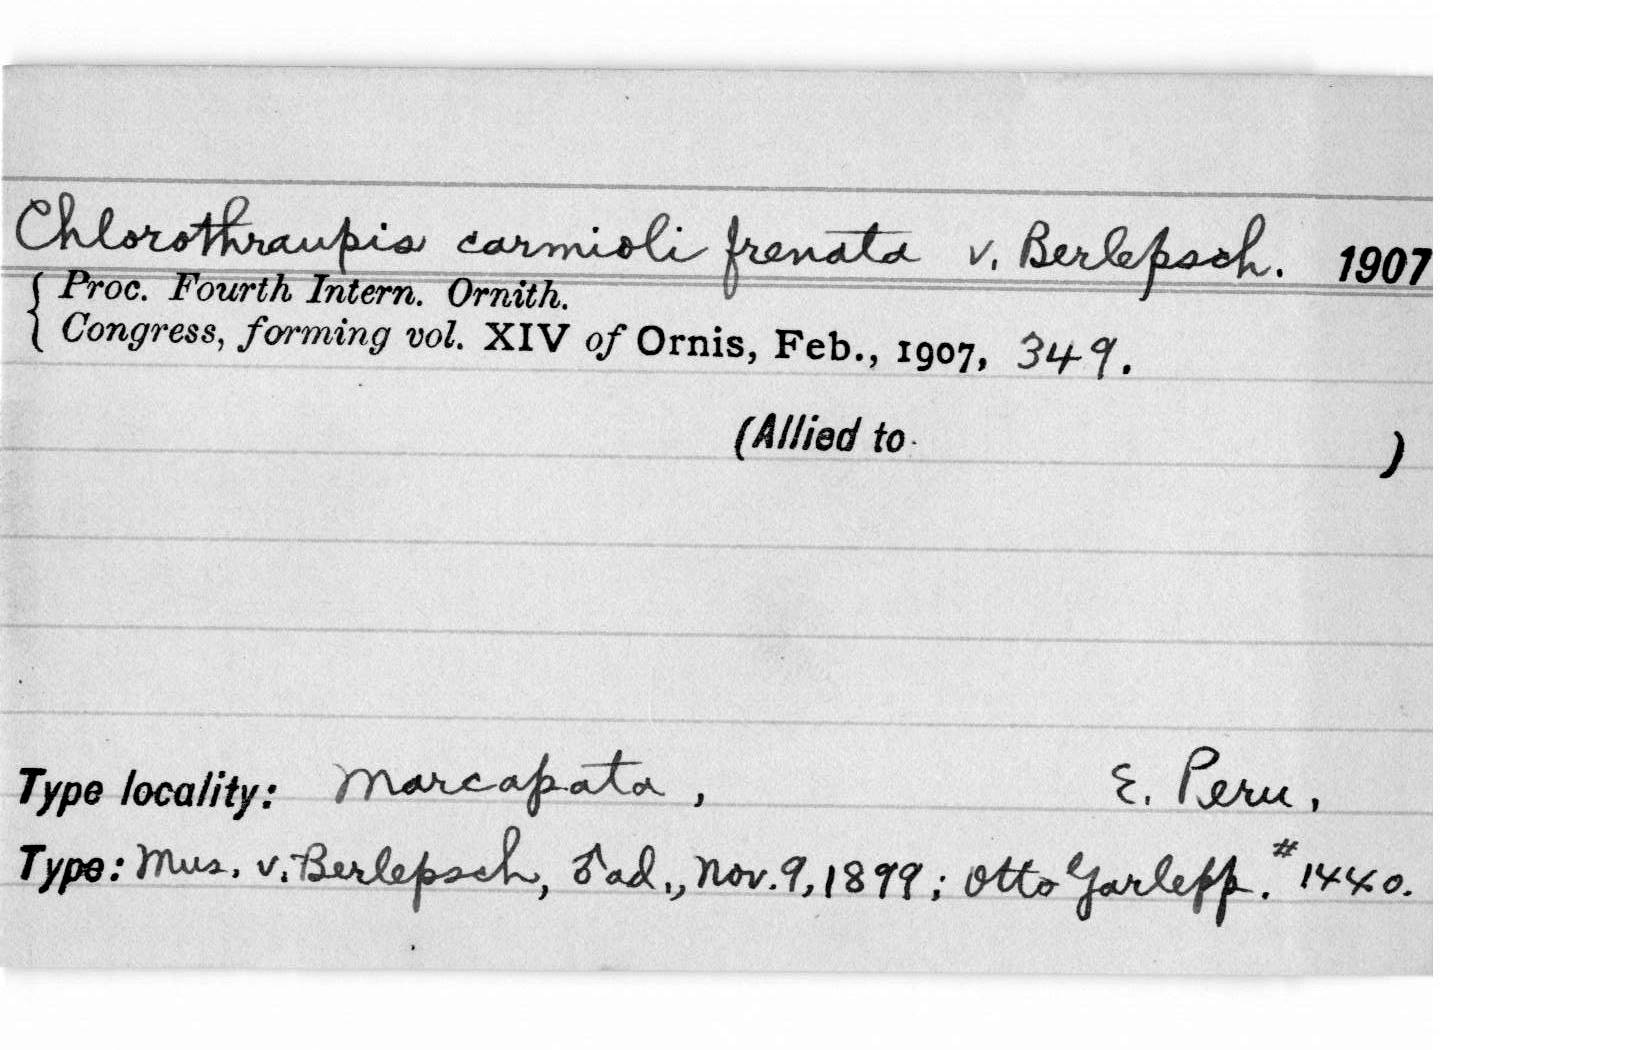 Chlorothraupis carmioli frenata v. Berlepsch. 1907
Proc. Fourth Intern. Ornith.
Congress, forming vol. XIV of Ornis, Feb., 1907, 349.
(Allied to )
Type locality: Marcapata, E. Peru,
Type: Mus. v. Berlepsch, ♂ ad., Nov. 9, 1899; Otto Garlepp. #1440.